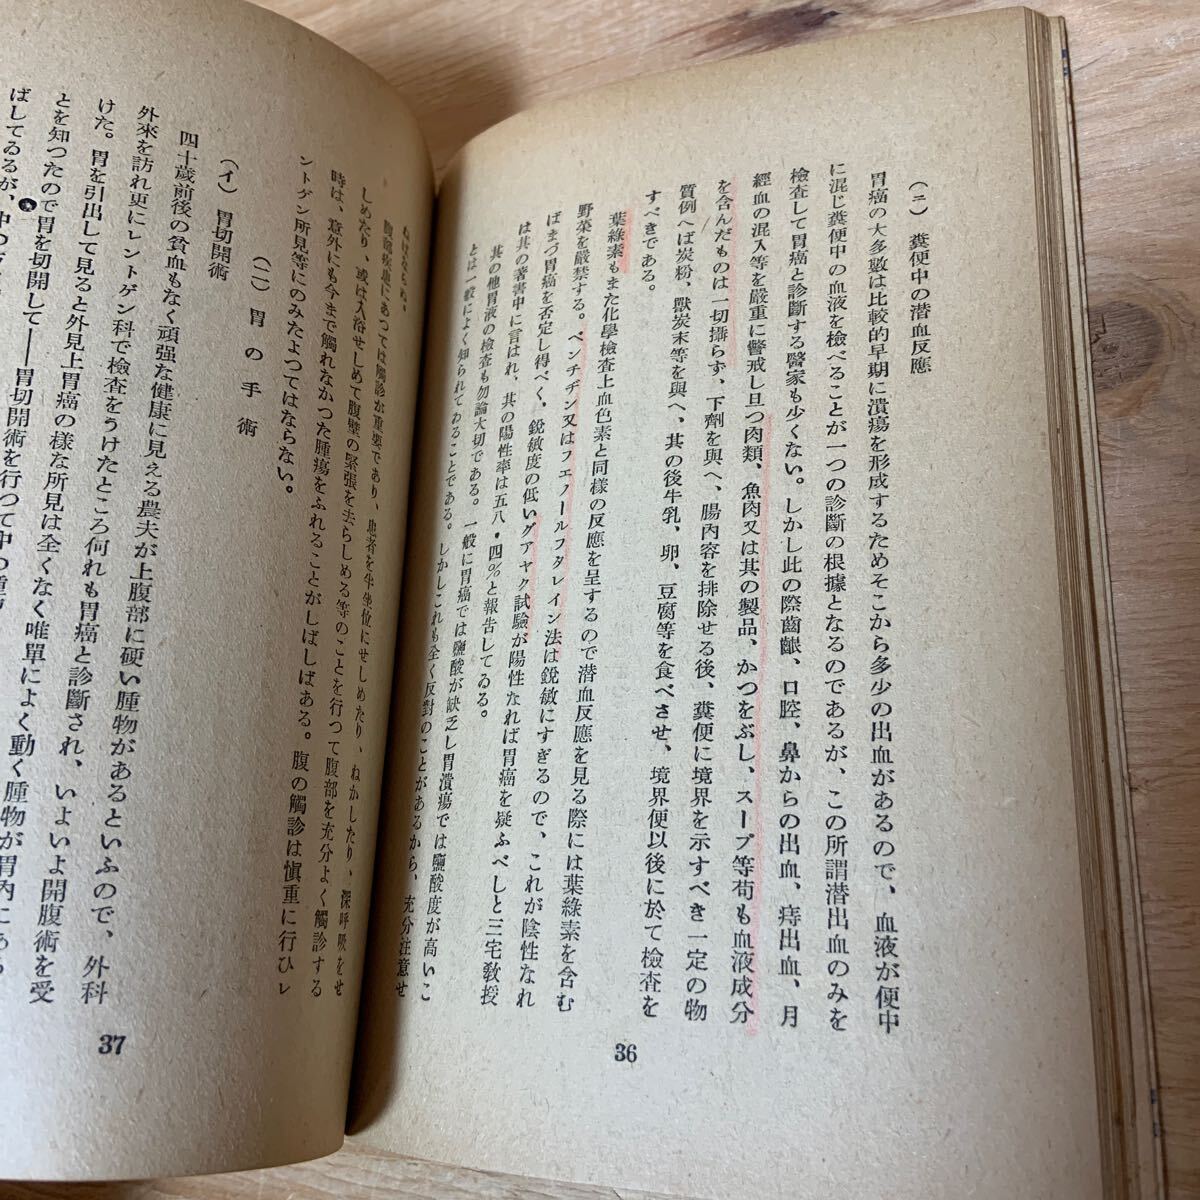 (ニ) 糞便中の潛血反應
胃癌の大多數は比較的早期に潰瘍を形成するためそこから多少の出血があるので、血液が便中
に混じ糞便中の血液を檢べることが一つの診斷の根據となるのであるが、この所謂潛出血のみを
檢査して胃癌と診斷する醫家も少くない。しかし此の際齒齦、口腔、鼻からの出血、痔出血、月
經血の混入等を嚴重に警戒し且つ肉類、魚肉又は其の製品、かつをぶし、スープ等苟も血液成分
を含んだものは一切攝らず、下劑を與へ、腸內容を排除せる後、糞便に境界を示すべき一定の物
質例へば炭粉、獸炭末等を與へ、其の後牛乳、卵、豆腐等を食べさせ、境界便以後に於て檢査を
すべきである。
葉綠素もまた化學檢査上血色素と同樣の反應を呈するので潛血反應を見る際には葉綠素を含む
野菜を嚴禁する。ベンチヂン又はフエノールフタレイン法は銳敏にすぎるので、これが陰性なれ
ばまづ胃癌を否定し得べく、銳敏度の低いグアヤク試驗が陽性なれば胃癌を疑ふべしと三宅敎授
は其の著書中に言はれ、其の陽性率は五八・四%と報告してゐる。
其の他胃液の檢査も勿論大切である。一般に胃癌では鹽酸が缺乏し胃潰瘍では鹽酸度が高いこ
とは一般によく知られてゐることである。しかしこれも全く反對のことがあるから、充分注意せ
36
ねばならぬ。
腹部疾患にあつては觸診が重要であり、患者を半坐位にせしめたり、ねかしたり、深呼吸をせ
しめたり、或は入浴せしめて腹壁の緊張を去らしめる等のことを行つて腹部を充分よく觸診する
時は、意外にも今まで觸れなかつた腫瘍をふれることがしばしばある。腹の觸診は愼重に行ひレ
ントゲン所見等にのみたよつてはならない。
(二) 胃の手術
(イ) 胃切開術
四十歲前後の貧血もなく頑强な健康に見える農夫が上腹部に硬い腫物があるといふので、外科
外來を訪れ更にレントゲン科で檢査をうけたところ何れも胃癌と診斷され、いよいよ開腹術を受
けた。胃を引出して見ると外見上胃癌の樣な所見は全くなく唯單によく動く腫物が胃內にある
とを知つたので胃を切開して——胃切開術を行つて中の腫
ばしてゐるが、中つ
37